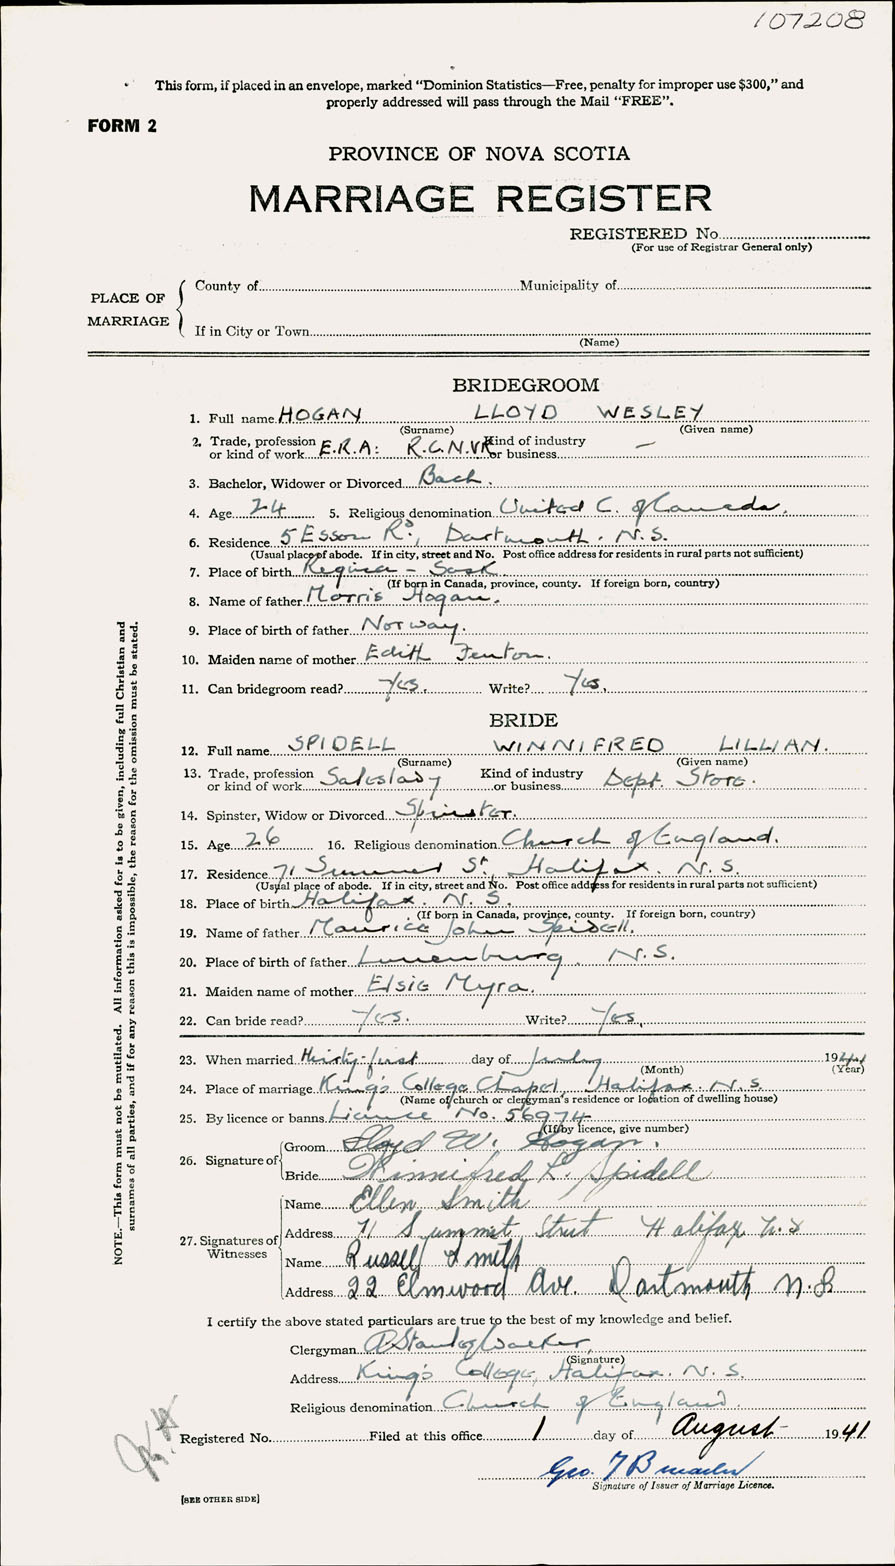 107208
This form, if placed in an envelope, marked "Dominion Statistics—Free, penalty for improper use $300," and
properly addressed will pass through the Mail "FREE".
FORM 2
PROVINCE OF NOVA SCOTIA
MARRIAGE REGISTER
REGISTERED No.
(For use of Registrar General only)
PLACE OF MARRIAGE
County of Municipality of
If in City or Town
(Name)
BRIDEGROOM
1. Full name HOGAN LLOYD WESLEY
(Surname) (Given name)
2. Trade, profession or kind of work E.R.A: R.C.N.VR Kind of industry or business —
3. Bachelor, Widower or Divorced Bach.
4. Age 24 5. Religious denomination United C. of Canada.
6. Residence 5 Esson Rd., Dartmouth. N.S.
(Usual place of abode. If in city, street and No. Post office address for residents in rural parts not sufficient)
7. Place of birth Regina – Sask.
(If born in Canada, province, county. If foreign born, country)
8. Name of father Morris Hogan.
9. Place of birth of father Norway.
10. Maiden name of mother Edith Fenton.
11. Can bridegroom read? Yes. Write? Yes.
BRIDE
12. Full name SPIDELL WINNIFRED LILLIAN.
(Surname) (Given name)
13. Trade, profession or kind of work Saleslady Kind of industry or business Dept. Store.
14. Spinster, Widow or Divorced Spinster.
15. Age 26 16. Religious denomination Church of England.
17. Residence 71 Summet St., Halifax. N.S.
(Usual place of abode. If in city, street and No. Post office address for residents in rural parts not sufficient)
18. Place of birth Halifax. N.S.
(If born in Canada, province, county. If foreign born, country)
19. Name of father Maurice John Spidell.
20. Place of birth of father Lunenburg. N.S.
21. Maiden name of mother Elsie Myra.
22. Can bride read? Yes. Write? Yes.
23. When married Thirty-first day of July 19
(Month) (Year)
24. Place of marriage King's College Chapel, Halifax. N.S.
(Name of church or clergyman's residence or location of dwelling house)
25. By licence or banns Licence No. 56974
(If by licence, give number)
26. Signature of Groom Lloyd W. Hogan.
Bride Winnifred L. Spidell
27. Signatures of Witnesses
Name Ellen Smith
Address 71 Summit Street Halifax N.S
Name Russell Smith
Address 22 Elmwood Ave. Dartmouth N.S.
I certify the above stated particulars are true to the best of my knowledge and belief.
Clergyman Stanley Walker
(Signature)
Address King's College, Halifax. N.S.
Religious denomination Church of England.
Registered No. Filed at this office 1 day of August 1941
Geo. T
Signature of Issuer of Marriage Licence.
[SEE OTHER SIDE]
NOTE.—This form must not be mutilated. All information asked for is to be given, including full Christian and
surnames of all parties, and if for any reason this is impossible, the reason for the omission must be stated.